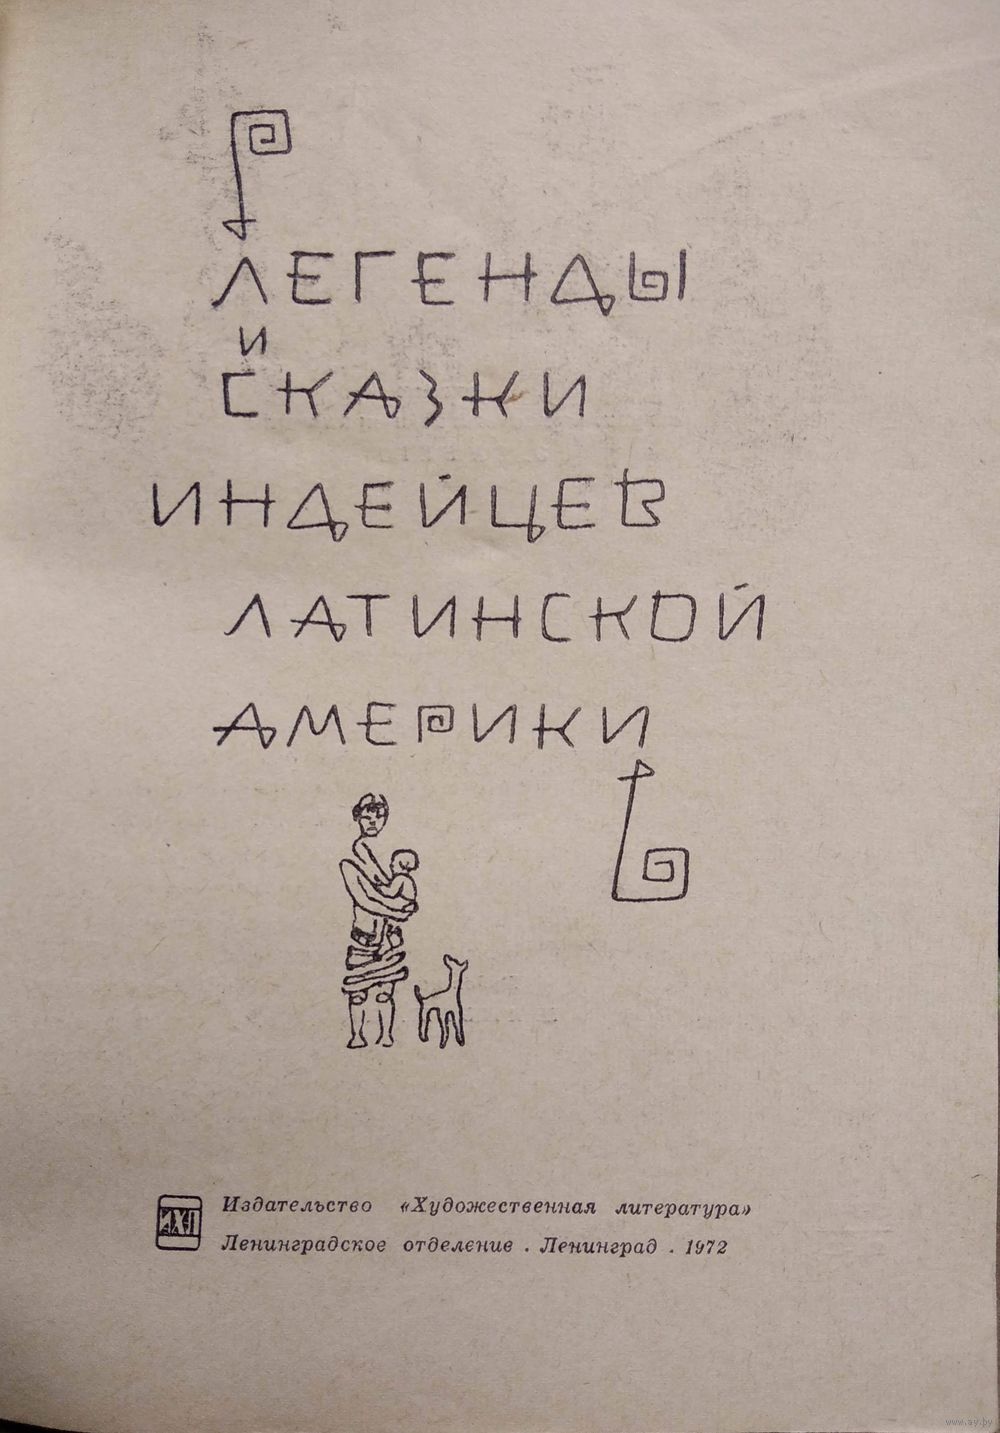 ЛЕГЕНДЫ
И
СКАЗКИ
ИНДЕЙЦЕВ
ЛАТИНСКОЙ
АМЕРИКИ
Издательство «Художественная литература»
Ленинградское отделение . Ленинград . 1972
www.ay.by